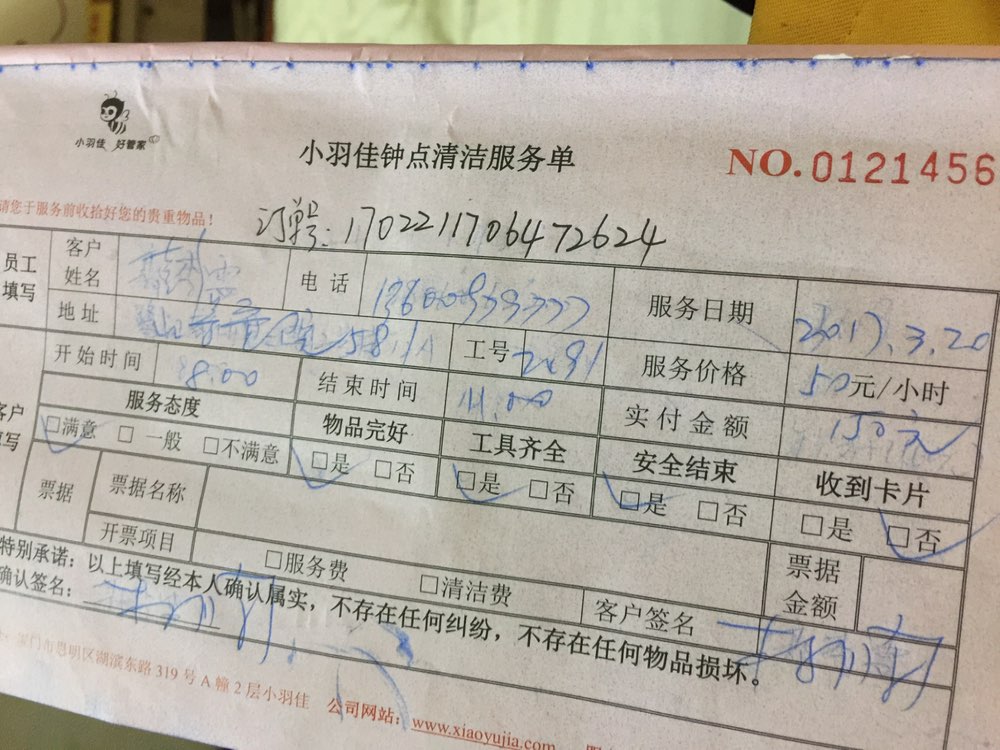 小羽佳 好管家
小羽佳钟点清洁服务单
NO.0121456
请您于服务前收拾好您的贵重物品！
订单号：1702211706472624
员工填写 客户姓名 电话 服务日期 2017.3.20
地址 工号 服务价格 50元/小时
开始时间 8:00 结束时间 11:00 实付金额 150元
客户填写 服务态度 物品完好 工具齐全 安全结束 收到卡片
□满意 □一般 □不满意 □是 □否 □是 □否 □是 □否 □是 □否
票据 票据名称 票据金额
开票项目 □服务费 □清洁费 客户签名
特别承诺：以上填写经本人确认属实，不存在任何纠纷，不存在任何物品损坏。
确认签名：
厦门市思明区湖滨东路319号A幢2层小羽佳 公司网站：www.xiaoyujia.com